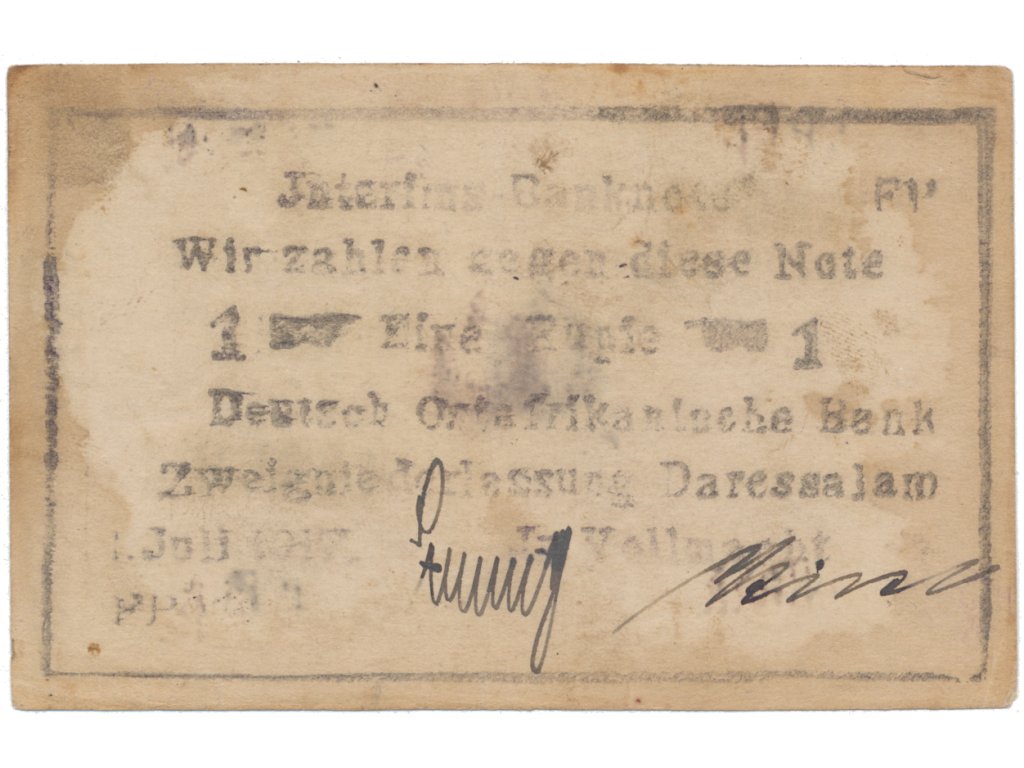 Interims-Banknote FP
Wir zahlen gegen diese Note
1 Eine Rupie 1
Deutsch Ostafrikanische Bank
Zweigniederlassung Daressalam
1. Juli 1917 In Vollmacht